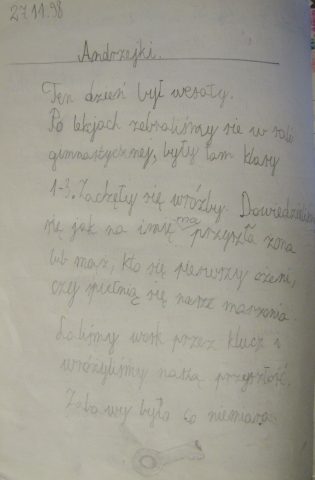 27.11.98
Andrzejki.
Ten dzień był wesoły.
Po lekcjach zebraliśmy się w sali
gimnastycznej, były tam klasy
1-3. Zaczęły się wróżby. Dowiedzieliśmy
się jak na imię ma przyszła żona
lub mąż, kto się pierwszy ożeni,
czy spełnią się nasze marzenia.
Laliśmy wosk przez klucz i
wróżyliśmy naszą przyszłość.
Zabawy było co niemiara.